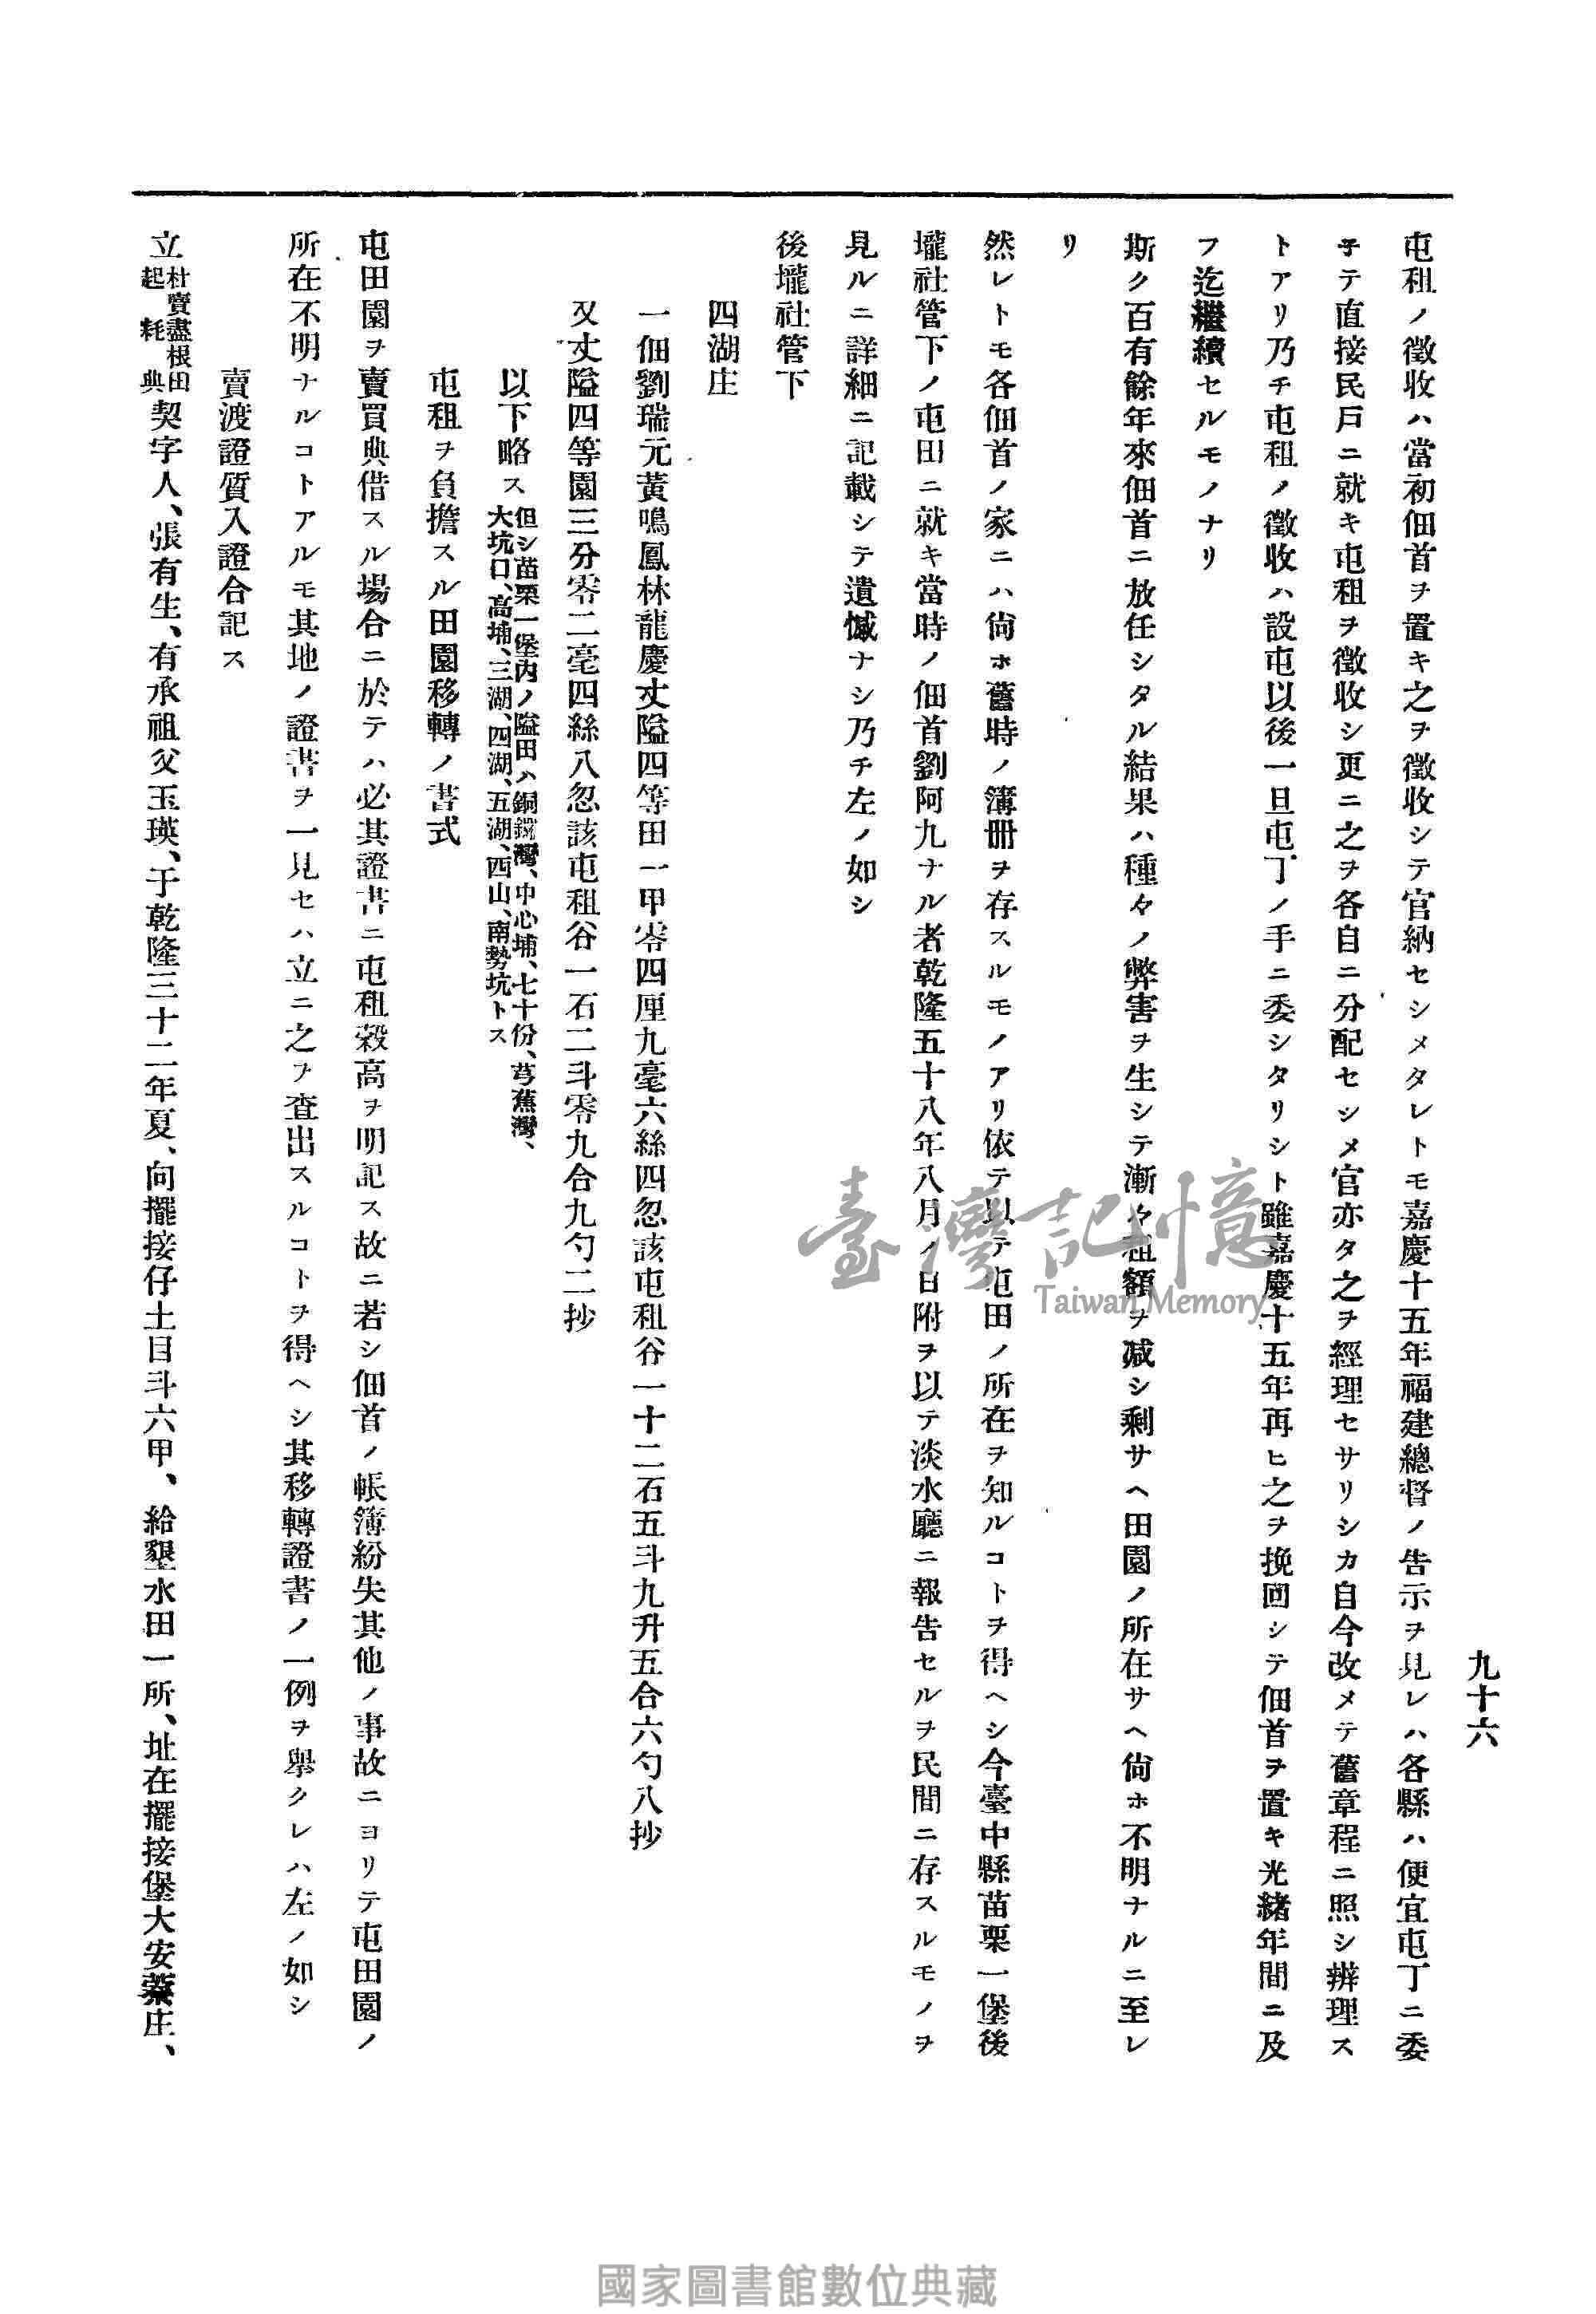 九十六
屯租ノ徵收ハ當初佃首ヲ置キ之ヲ徵收シテ官納セシメタレトモ嘉慶十五年福建總督ノ告示ヲ見レハ各縣ハ便宜屯丁ニ委
子テ直接民戶ニ就キ屯租ヲ徵收シ更ニ之ヲ各自ニ分配セシメ官亦タ之ヲ經理セサリシカ自今改メテ舊章程ニ照シ辨理ス
トアリ乃チ屯租ノ徵收ハ設屯以後一旦屯丁ノ手ニ委シタリシト雖嘉慶十五年再ヒ之ヲ挽囬シテ佃首ヲ置キ光緖年間ニ及
フ迄繼續セルモノナリ
斯ク百有餘年來佃首ニ放任シタル結果ハ種々ノ弊害ヲ生シテ漸々租額ヲ减シ剩サヘ田園ノ所在サヘ尙ホ不明ナルニ至レ
リ
然レトモ各佃首ノ家ニハ尙ホ舊時ノ簿冊ヲ存スルモノアリ依テ以テ屯田ノ所在ヲ知ルコトヲ得ヘシ今臺中縣苗栗一堡後
壠社管下ノ屯田ニ就キ當時ノ佃首劉阿九ナル者乾隆五十八年八月ノ日附ヲ以テ淡水廳ニ報告セルヲ民間ニ存スルモノヲ
見ルニ詳細ニ記載シテ遺憾ナシ乃チ左ノ如シ
後壠社管下
四湖庄
一佃劉瑞元黃鳴鳳林龍慶丈隘四等田一甲零四厘九毫六絲四忽該屯租谷一十二石五斗九升五合六勺八抄
又丈隘四等園三分零二毫四絲八忽該屯租谷一石二斗零九合九勺二抄
以下略ス但シ苗栗一堡內ノ隘田ハ銅鑼灣、中心埔、七十份、芎蕉灣、
大坑口、高埔、三湖、四湖、五湖、西山、南勢坑トス
屯租ヲ負擔スル田園移轉ノ書式
屯田園ヲ賣買典借スル場合ニ於テハ必其證書ニ屯租穀高ヲ明記ス故ニ若シ佃首ノ帳簿紛失其他ノ事故ニヨリテ屯田園ノ
所在不明ナルコトアルモ其地ノ證書ヲ一見セハ立ニ之ヲ査出スルコトヲ得ヘシ其移轉證書ノ一例ヲ擧クレハ左ノ如シ
賣渡證質入證合記ス
立杜賣盡根田
起耗典契字人、張有生、有承祖父玉瑛、于乾隆三十二年夏、向擺接仔土目斗六甲、給墾水田一所、址在擺接堡大安藔庄、
臺灣記憶
Taiwan Memory
國家圖書館數位典藏